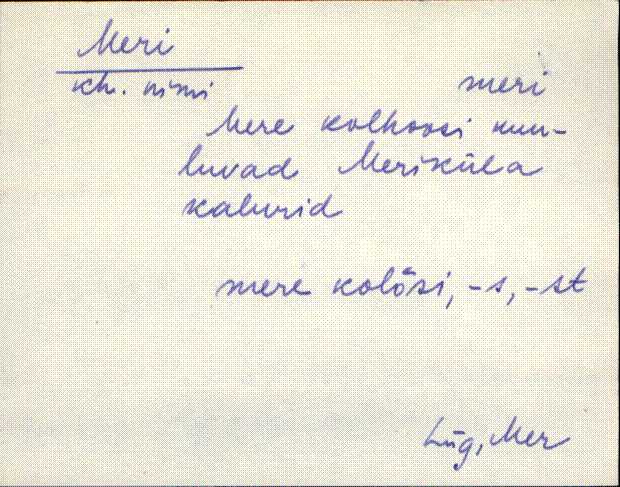 Meri
kh. nimi
meri
Mere kolhoosi kuu-
luvad Meriküla
kalurid
mere kolõsi, -s, -st
Lüg, Mer